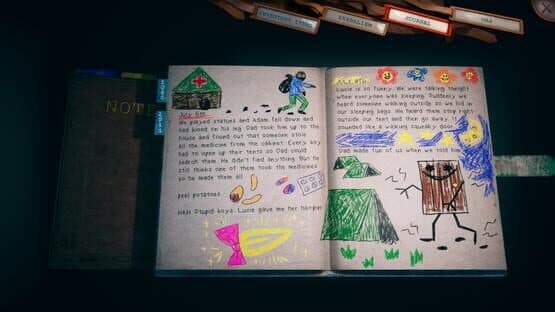 JOURNAL
MAP
NOTE
July 6th
We played statues and Adam fell down and
had blood on his leg. Dad took him up to the
house and found out that someone stole
all the medicine from the cabinet. Every boy
had to open up their tents so Dad could
search them. He didn't find anything. But he
still thinks one of them took the medicines
so he made them all
peel potatoes
Stupid boys. Lucie gave me her hairpin
Lucie is so funny. We were talking tonight
when everyone was sleeping. Suddenly we
heard someone walking outside so we hid in
our sleeping bags. We heard them stop right
outside our tent and then go away. It
sounded like a walking squeaky door.
Dad made fun of us when we told him